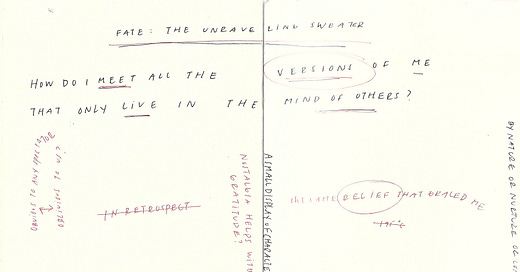 FATE: THE UNRAVELING SWEATER
HOW DO I MEET ALL THE VERSIONS OF ME
THAT ONLY LIVE IN THE MIND OF OTHERS?
IN RETROSPECT
NOSTALGIA HELPS WITH
GRATITUDE?
A SMALL DISPLAY OF CHARACTE
THE SAME BELIEF THAT GRACED ME
BY NATURE OR NURTURE OR